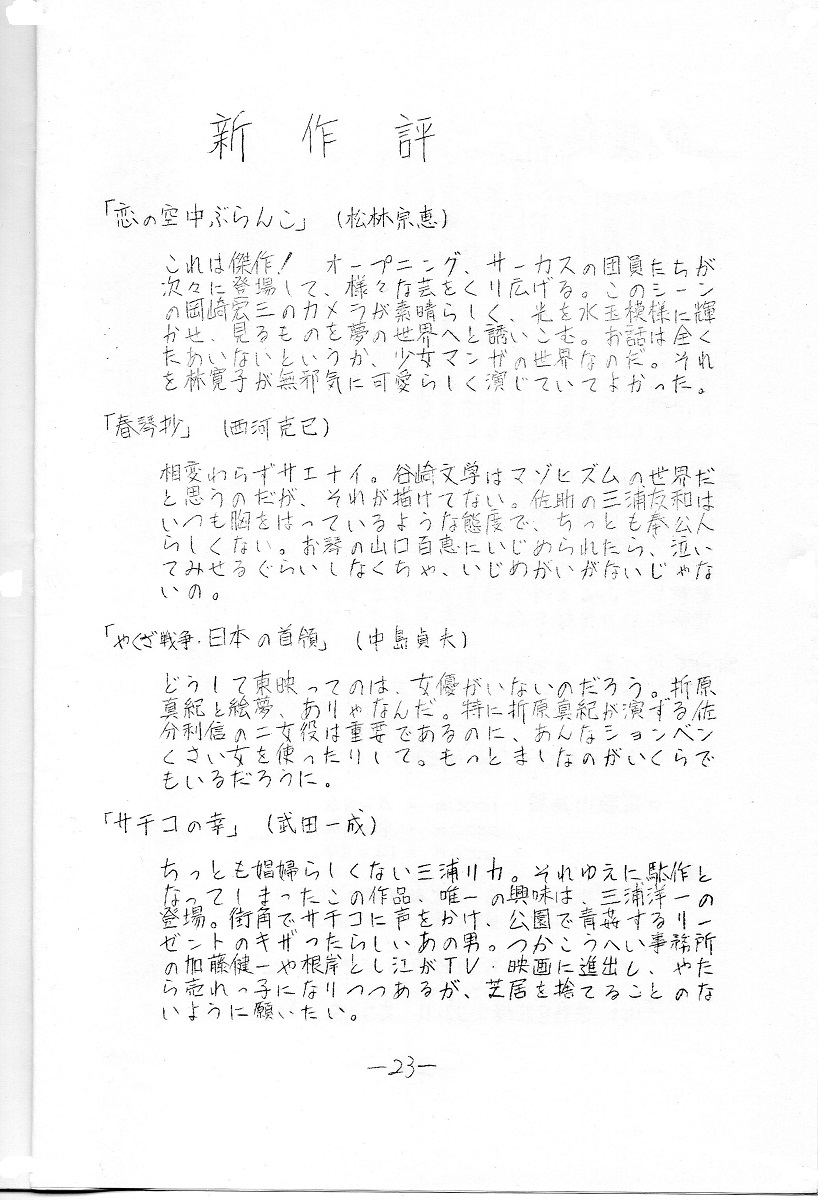 新作評
「恋の空中ぶらんこ」（松林宗恵）
これは傑作！　オープニング、サーカスの団員たちが
次々に登場して、様々な芸をくり広げる。このシーン
の岡崎宏三のカメラが素晴らしく、光を水玉模様に輝
かせ、見るものを夢の世界へと誘いこむ。お話は全く
たあいないというか、少女マンガの世界なのだ。それ
を林寛子が無邪気に可愛らしく演じていてよかった。
「春琴抄」（西河克己）
相変わらずサエナイ。谷崎文学はマゾヒズムの世界だ
と思うのだが、それが描けてない。佐助の三浦友和は
いつも胸をはっているような態度で、ちっとも奉公人
らしくない。お琴の山口百恵にいじめられたら、泣い
てみせるぐらいしなくちゃ、いじめがいがないじゃな
いの。
「やくざ戦争・日本の首領」（中島貞夫）
どうして東映ってのは、女優がいないのだろう。折原
真紀と絵夢、ありゃなんだ。特に折原真紀が演ずる佐
分利信の二女役は重要であるのに、あんなションベン
くさい女を使ったりして。もっとましなのがいくらで
もいるだろうに。
「サチコの幸」（武田一成）
ちっとも娼婦らしくない三浦リカ。それゆえに駄作と
なってしまったこの作品、唯一の興味は、三浦洋一の
登場。街角でサチコに声をかけ、公園で青姦するリー
ゼントのキザったらしいあの男。つかこうへい事務所
の加藤健一や根岸とし江がTV・映画に進出し、やた
ら売れっ子になりつつあるが、芝居を捨てることのな
いように願いたい。
―23―